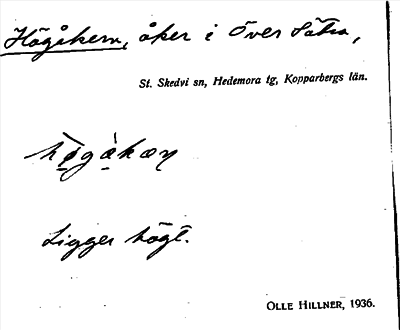 Högåkern, åker i Över Sätra,
St. Skedvi sn, Hedemora tg, Kopparbergs län.
Ligger högt.
OLLE HILLNER, 1936.